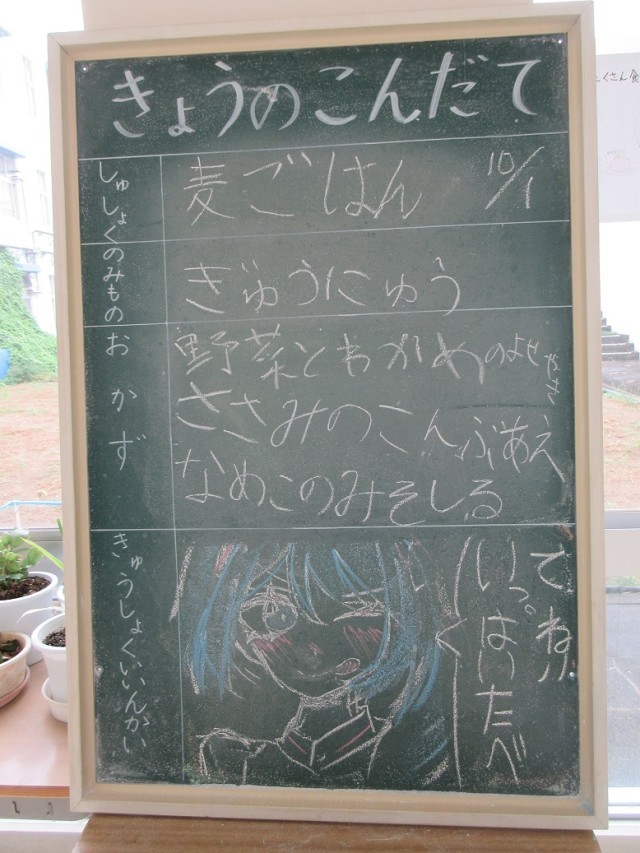 きょうのこんだて
しゅしょく
麦ごはん 10/1
のみもの
ぎゅうにゅう
おかず
野菜とわかめのよせ
ささみのこんぶあえ
なめこのみそしる
きゅうしょくいいんかい
いっぱいたべ
てね!!
くさん食